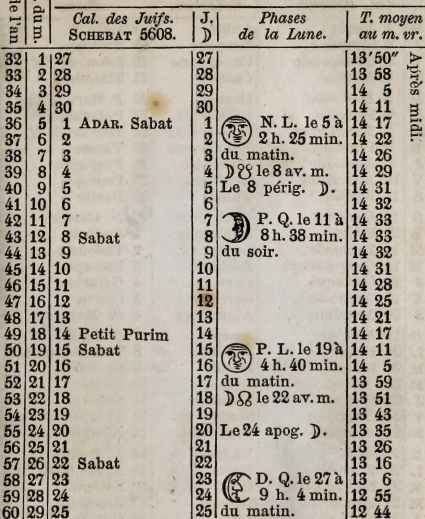 e l'an
du m.
Cal. des Juifs. J. Phases T. moyen
SCHEBAT 5608. ☽ de la Lune. au m. vr.
32 1 27 27 13'50"
33 2 28 28 13 58
34 3 29 29 14 5
35 4 30 30 14 11
36 5 1 ADAR. Sabat 1 N. L. le 5 à 14 17
37 6 2 2 2 h. 25 min. 14 22
38 7 3 3 du matin. 14 26
39 8 4 4 ☽☋ le 8 av. m. 14 29
40 9 5 5 Le 8 périg. ☽. 14 31
41 10 6 6 14 32
42 11 7 7 P. Q. le 11 à 14 33
43 12 8 Sabat 8 8 h. 38 min. 14 33
44 13 9 9 du soir. 14 32
45 14 10 10 14 31
46 15 11 11 14 28
47 16 12 12 14 25
48 17 13 13 14 21
49 18 14 Petit Purim 14 14 17
50 19 15 Sabat 15 P. L. le 19 à 14 11
51 20 16 16 4 h. 40 min. 14 5
52 21 17 17 du matin. 13 59
53 22 18 18 ☽☊ le 22 av. m. 13 51
54 23 19 19 13 43
55 24 20 20 Le 24 apog. ☽. 13 35
56 25 21 21 13 26
57 26 22 Sabat 22 13 16
58 27 23 23 D. Q. le 27 à 13 6
59 28 24 24 9 h. 4 min. 12 55
60 29 25 25 du matin. 12 44
Après midi.